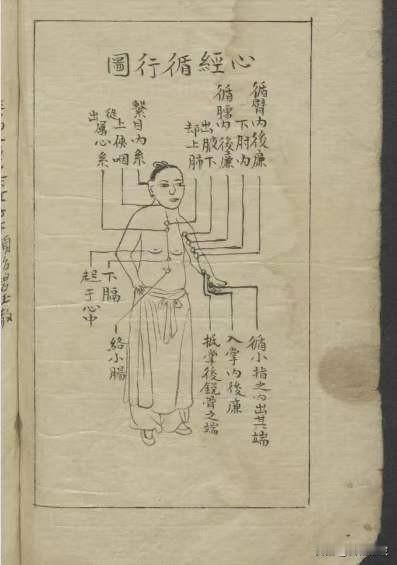 心經循行圖
循臂內後廉
下肘內
循臑內後廉
出腋下
却上肺
繫目內系
從上俠咽
出屬心系
下膈
起于心中
絡小腸
循小指之內出其端
入掌內後廉
抵掌後銳骨之端